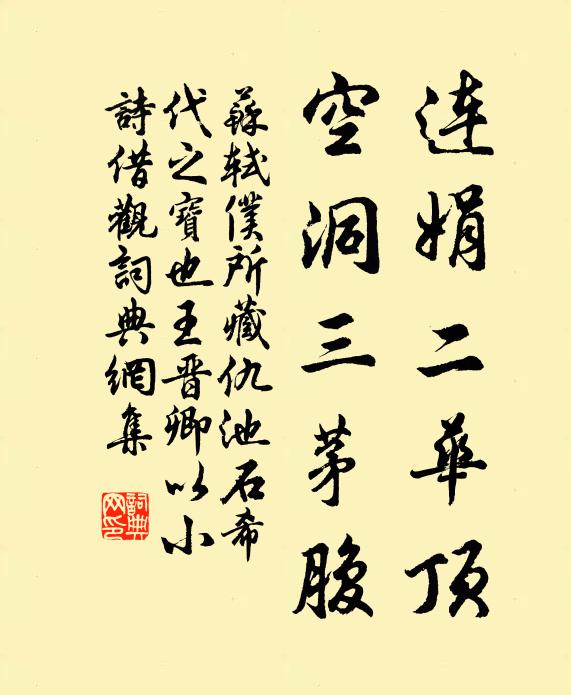 連娟二華頂
空洞三茅腹
蘇軾僕所藏仇池石希
代之寶也王晋卿以小
詩借觀詞典網集
詞典網印